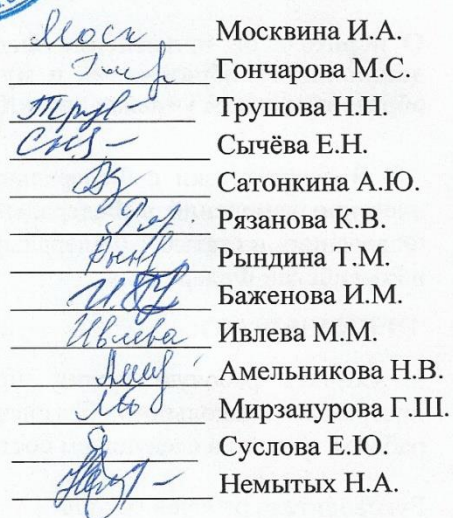 Моск Москвина И.А.
Гончарова М.С.
Труш Трушова Н.Н.
Сычёва Е.Н.
Сатонкина А.Ю.
Рязанова К.В.
Рындина Т.М.
Баженова И.М.
Ивлева Ивлева М.М.
Амельникова Н.В.
Мирзанурова Г.Ш.
Суслова Е.Ю.
Немытых Н.А.